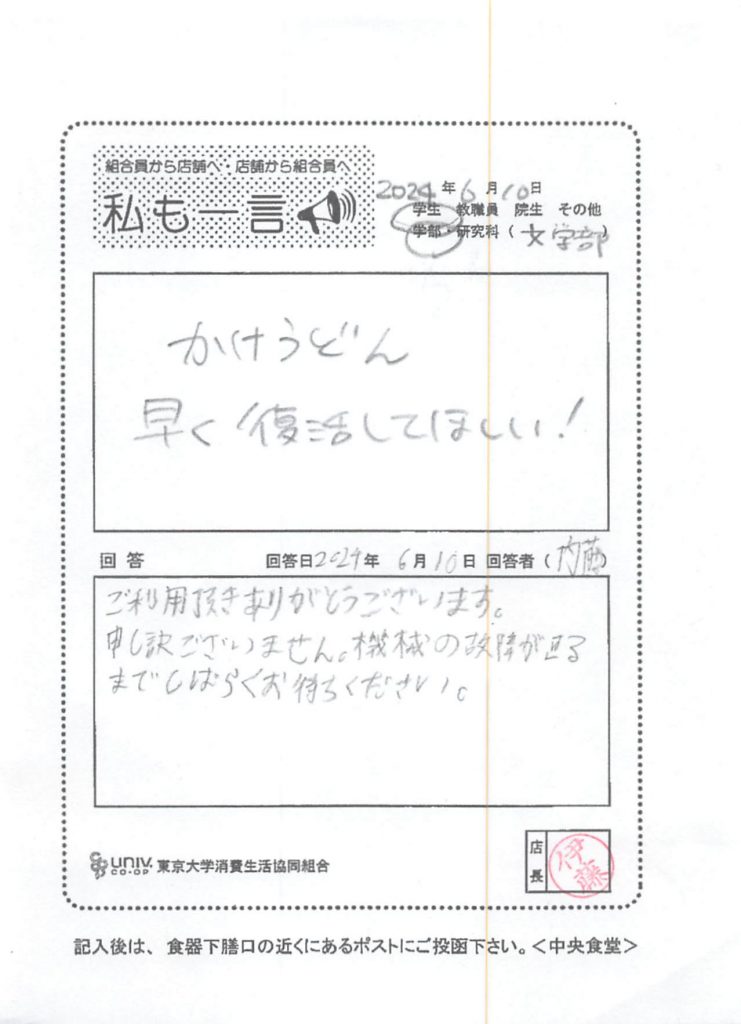 組合員から店舗へ・店舗から組合員へ
私も一言
2024年6月10日
学生 教職員 院生 その他
学部・研究科(文学部)
かけうどん
早く復活してほしい!
回答 回答日2024年6月10日 回答者(内藤)
ご利用頂きありがとうございます。
申し訳ございません。機械の故障が直る
までしばらくお待ちください。
UNIV.
CO-OP
東京大学消費生活協同組合
店長
伊藤
記入後は、食器下膳口の近くにあるポストにご投函下さい。<中央食堂>